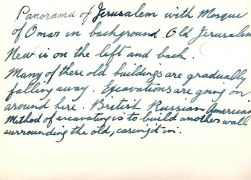 Panorama of Jerusalem with Mosque
of Omar in background. Old Jerusalem
New is on the left and back.
Many of these old buildings are gradually
falling away. Excavations are going on
around here. British Russian American
Method of excavating is to build another wall
surrounding the old, caving it in.